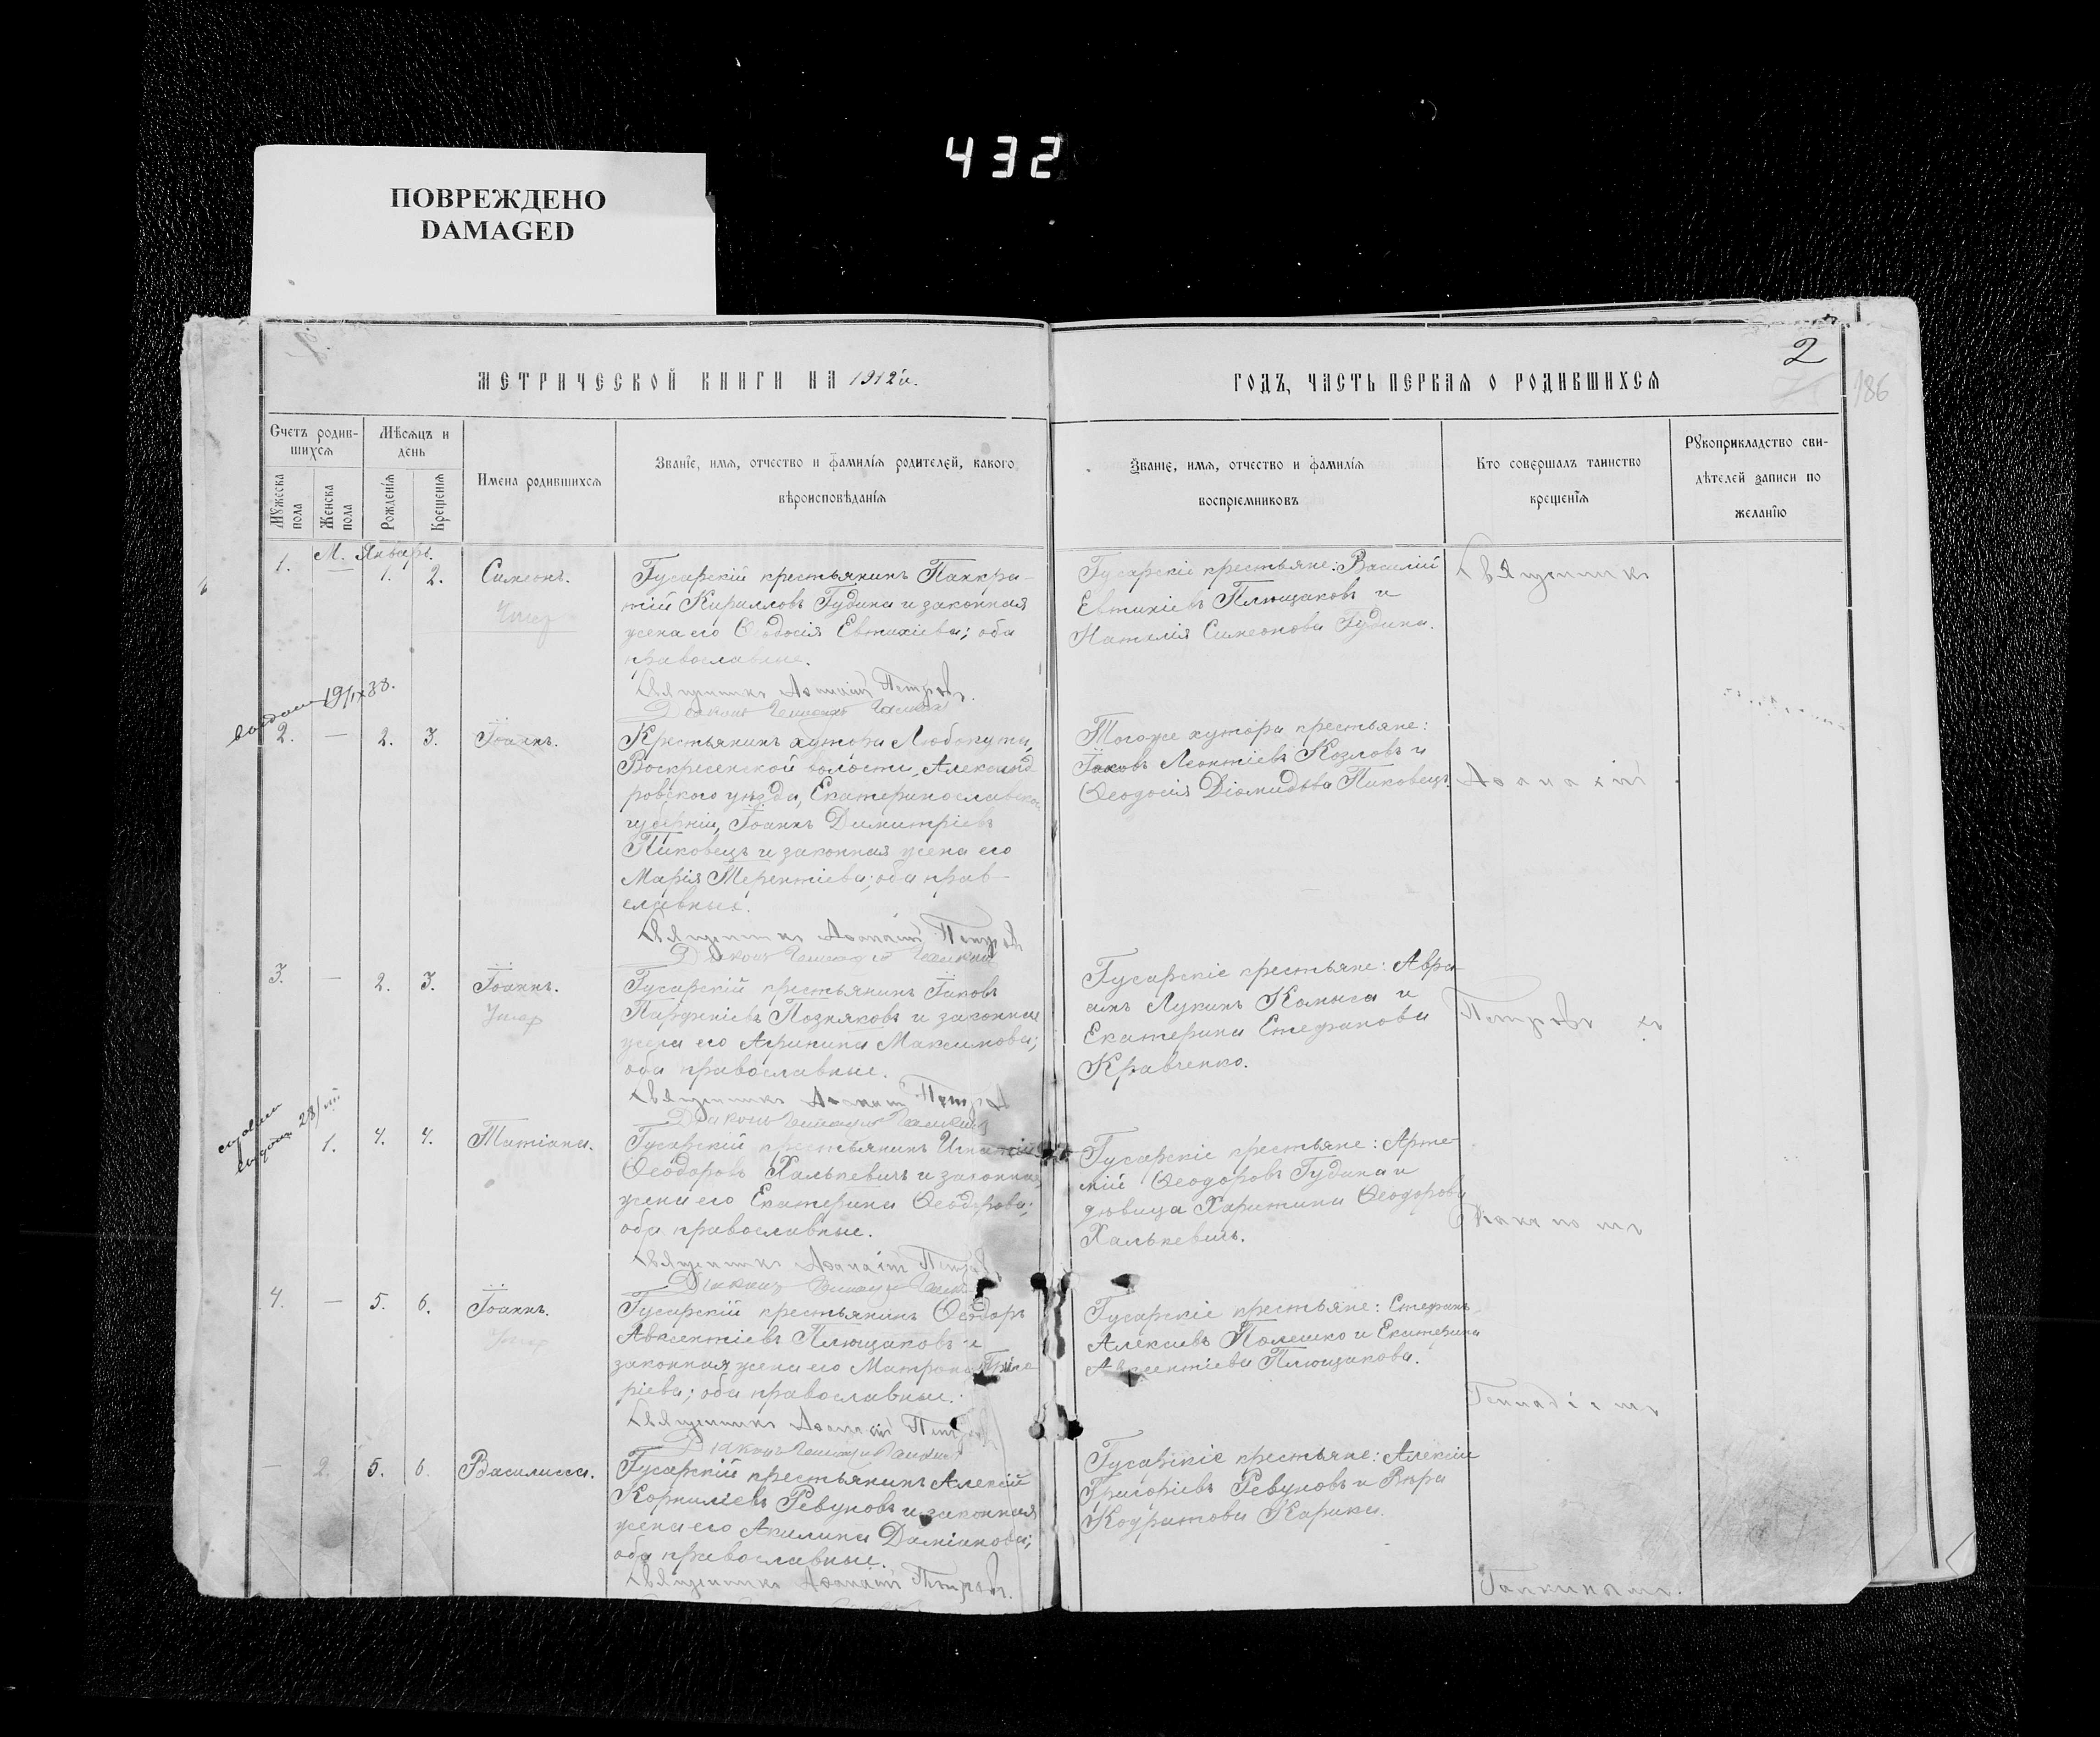 432
ПОВРЕЖДЕНО
DAMAGED
2
186
МЕТРИЧЕСКОЙ КНИГИ НА 1912 й.
ГОДЪ, ЧАСТЬ ПЕРВАЯ О РОДИВШИХСЯ
Счетъ родив-
шихся
Мѣсяцъ и
день
Мужеска
пола
Женска
пола
Рожденія
Крещенія
Имена родившихся
Званіе, имя, отчество и фамилія родителей, какого
вѣроисповѣданія
Званіе, имя, отчество и фамилія
воспріемниковъ
Кто совершалъ таинство
крещенія
Рукоприкладство сви-
дѣтелей записи по
желанію
М. Январь.
1. — 1. 2. Симеонъ.
Гусарскій крестьянинъ Панкра-
тій Кирилловъ Гудина и законная
жена его Ѳеодосія Евтихіева; оба
православные.
Священникъ Аѳанасій Петровъ.
Діаконъ Геннадій Галкинъ
Гусарскіе крестьяне: Василій
Евтихіевъ Плющаковъ и
Наталія Симеонова Гудина.
Священникъ
19/IX 38.
2. — 2. 3. Іоаннъ.
Крестьянинъ хутора Любопути,
Воскресенской волости, Александ-
ровского уѣзда, Екатеринославской
губерніи, Іоаннъ Димитріевъ
Пиковецъ и законная жена его
Марія Терентіева; оба прав-
славные.
Священникъ Аѳанасій Петровъ
Діаконъ Геннадій Галкинъ
Тогоже хутора крестьяне:
Іаковъ Леонтіевъ Козловъ и
Ѳеодосія Діомидова Пиковецъ.
Аѳанасій
3. — 2. 3. Іоаннъ.
Умер
Гусарскій крестьянинъ Іаковъ
Парѳеніевъ Позняковъ и законная
жена его Агрипина Максимова;
оба православные.
Священникъ Аѳанасій Петровъ
Діаконъ Геннадій Галкинъ
Гусарскіе крестьяне: Авра-
амъ Лукинъ Капыса и
Екатерина Стефанова
Кравченко.
Петровъ съ
1. 4. 4. Татіана.
Гусарскій крестьянинъ Игнатій
Ѳеодоровъ Халькевичъ и законная
жена его Екатерина Ѳеодорова;
оба православные.
Священникъ Аѳанасій Петровъ
Діаконъ Геннадій Галкинъ
Гусарскіе крестьяне: Арте-
мій Ѳеодоровъ Гудина и
дѣвица Харитина Ѳеодорова
Халькевичъ.
Діакономъ
4. — 5. 6. Іоаннъ.
Умер
Гусарскій крестьянинъ Ѳеодоръ
Авксентіевъ Плющаковъ и
законная жена его Матрона
ріева; оба православные.
Священникъ Аѳанасій Петровъ
Діаконъ Геннадій Галкинъ
Гусарскіе крестьяне: Стефанъ
Алексіевъ Полешко и Екатерина
Авксентіева Плющакова.
Геннадіемъ
— 2. 5. 6. Василисса.
Гусарскій крестьянинъ Алексій
Корниліевъ Ревуновъ и законная
жена его Акилина Даміанова;
оба православные.
Священникъ Аѳанасій Петровъ.
Гусарскіе крестьяне: Алексій
Григоріевъ Ревуновъ и Вѣра
Кодратова Карика.
Галкинымъ.